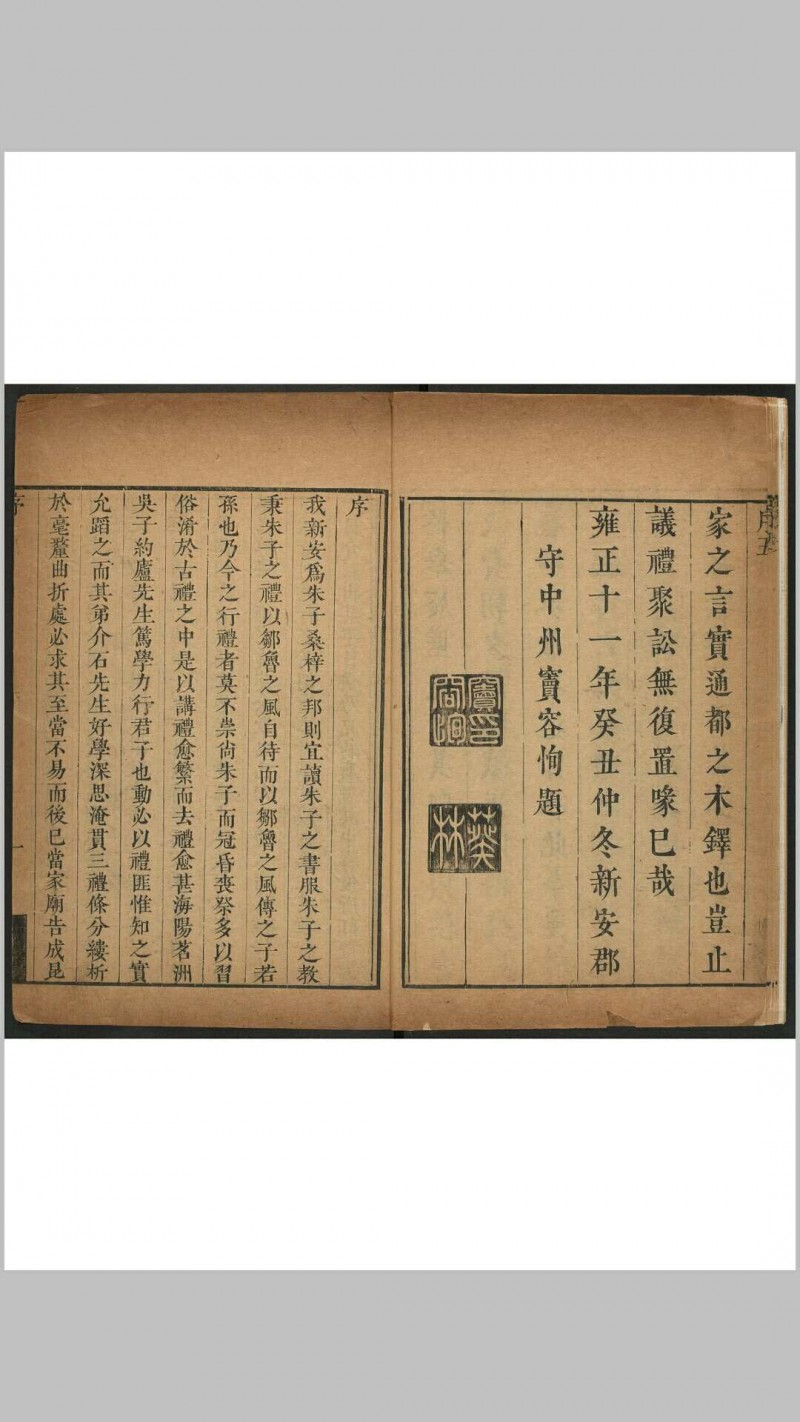 序五
家之言實通都之木鐸也豈止
議禮聚訟無復置喙已哉
雍正十一年癸丑仲冬新安郡
守中州竇容恂題
竇印容恂
蕤林
序
我新安爲朱子桑梓之邦則宜讀朱子之書服朱子之教
秉朱子之禮以鄒魯之風自待而以鄒魯之風傳之子若
孫也乃今之行禮者莫不崇尚朱子而冠昏喪祭多以習
俗淆於古禮之中是以講禮愈繁而去禮愈甚海陽茗洲
吳子約廬先生篤學力行君子也動必以禮匪惟知之實
允蹈之而其弟介石先生好學深思淹貫三禮條分縷析
於毫釐曲折處必求其至當不易而後已當家廟告成昆
序
一